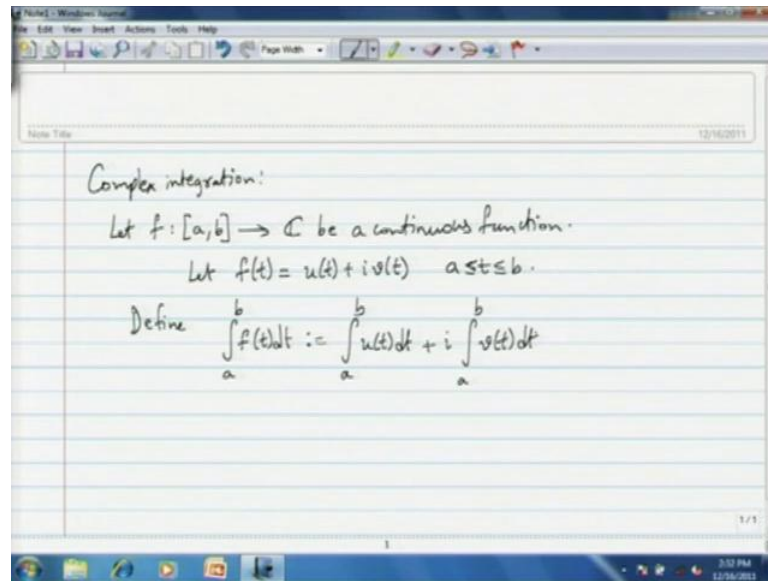 Note1 - Windows Journal
File Edit View Insert Actions Tools Help
Page Width
Note Title
12/16/2011
Complex integration:
Let f : [a,b] → ℂ be a continuous function.
Let f(t) = u(t) + i v(t) a ≤ t ≤ b.
Define ∫_a^b f(t)dt := ∫_a^b u(t)dt + i ∫_a^b v(t)dt
1/1
1
2:52 PM
12/16/2011